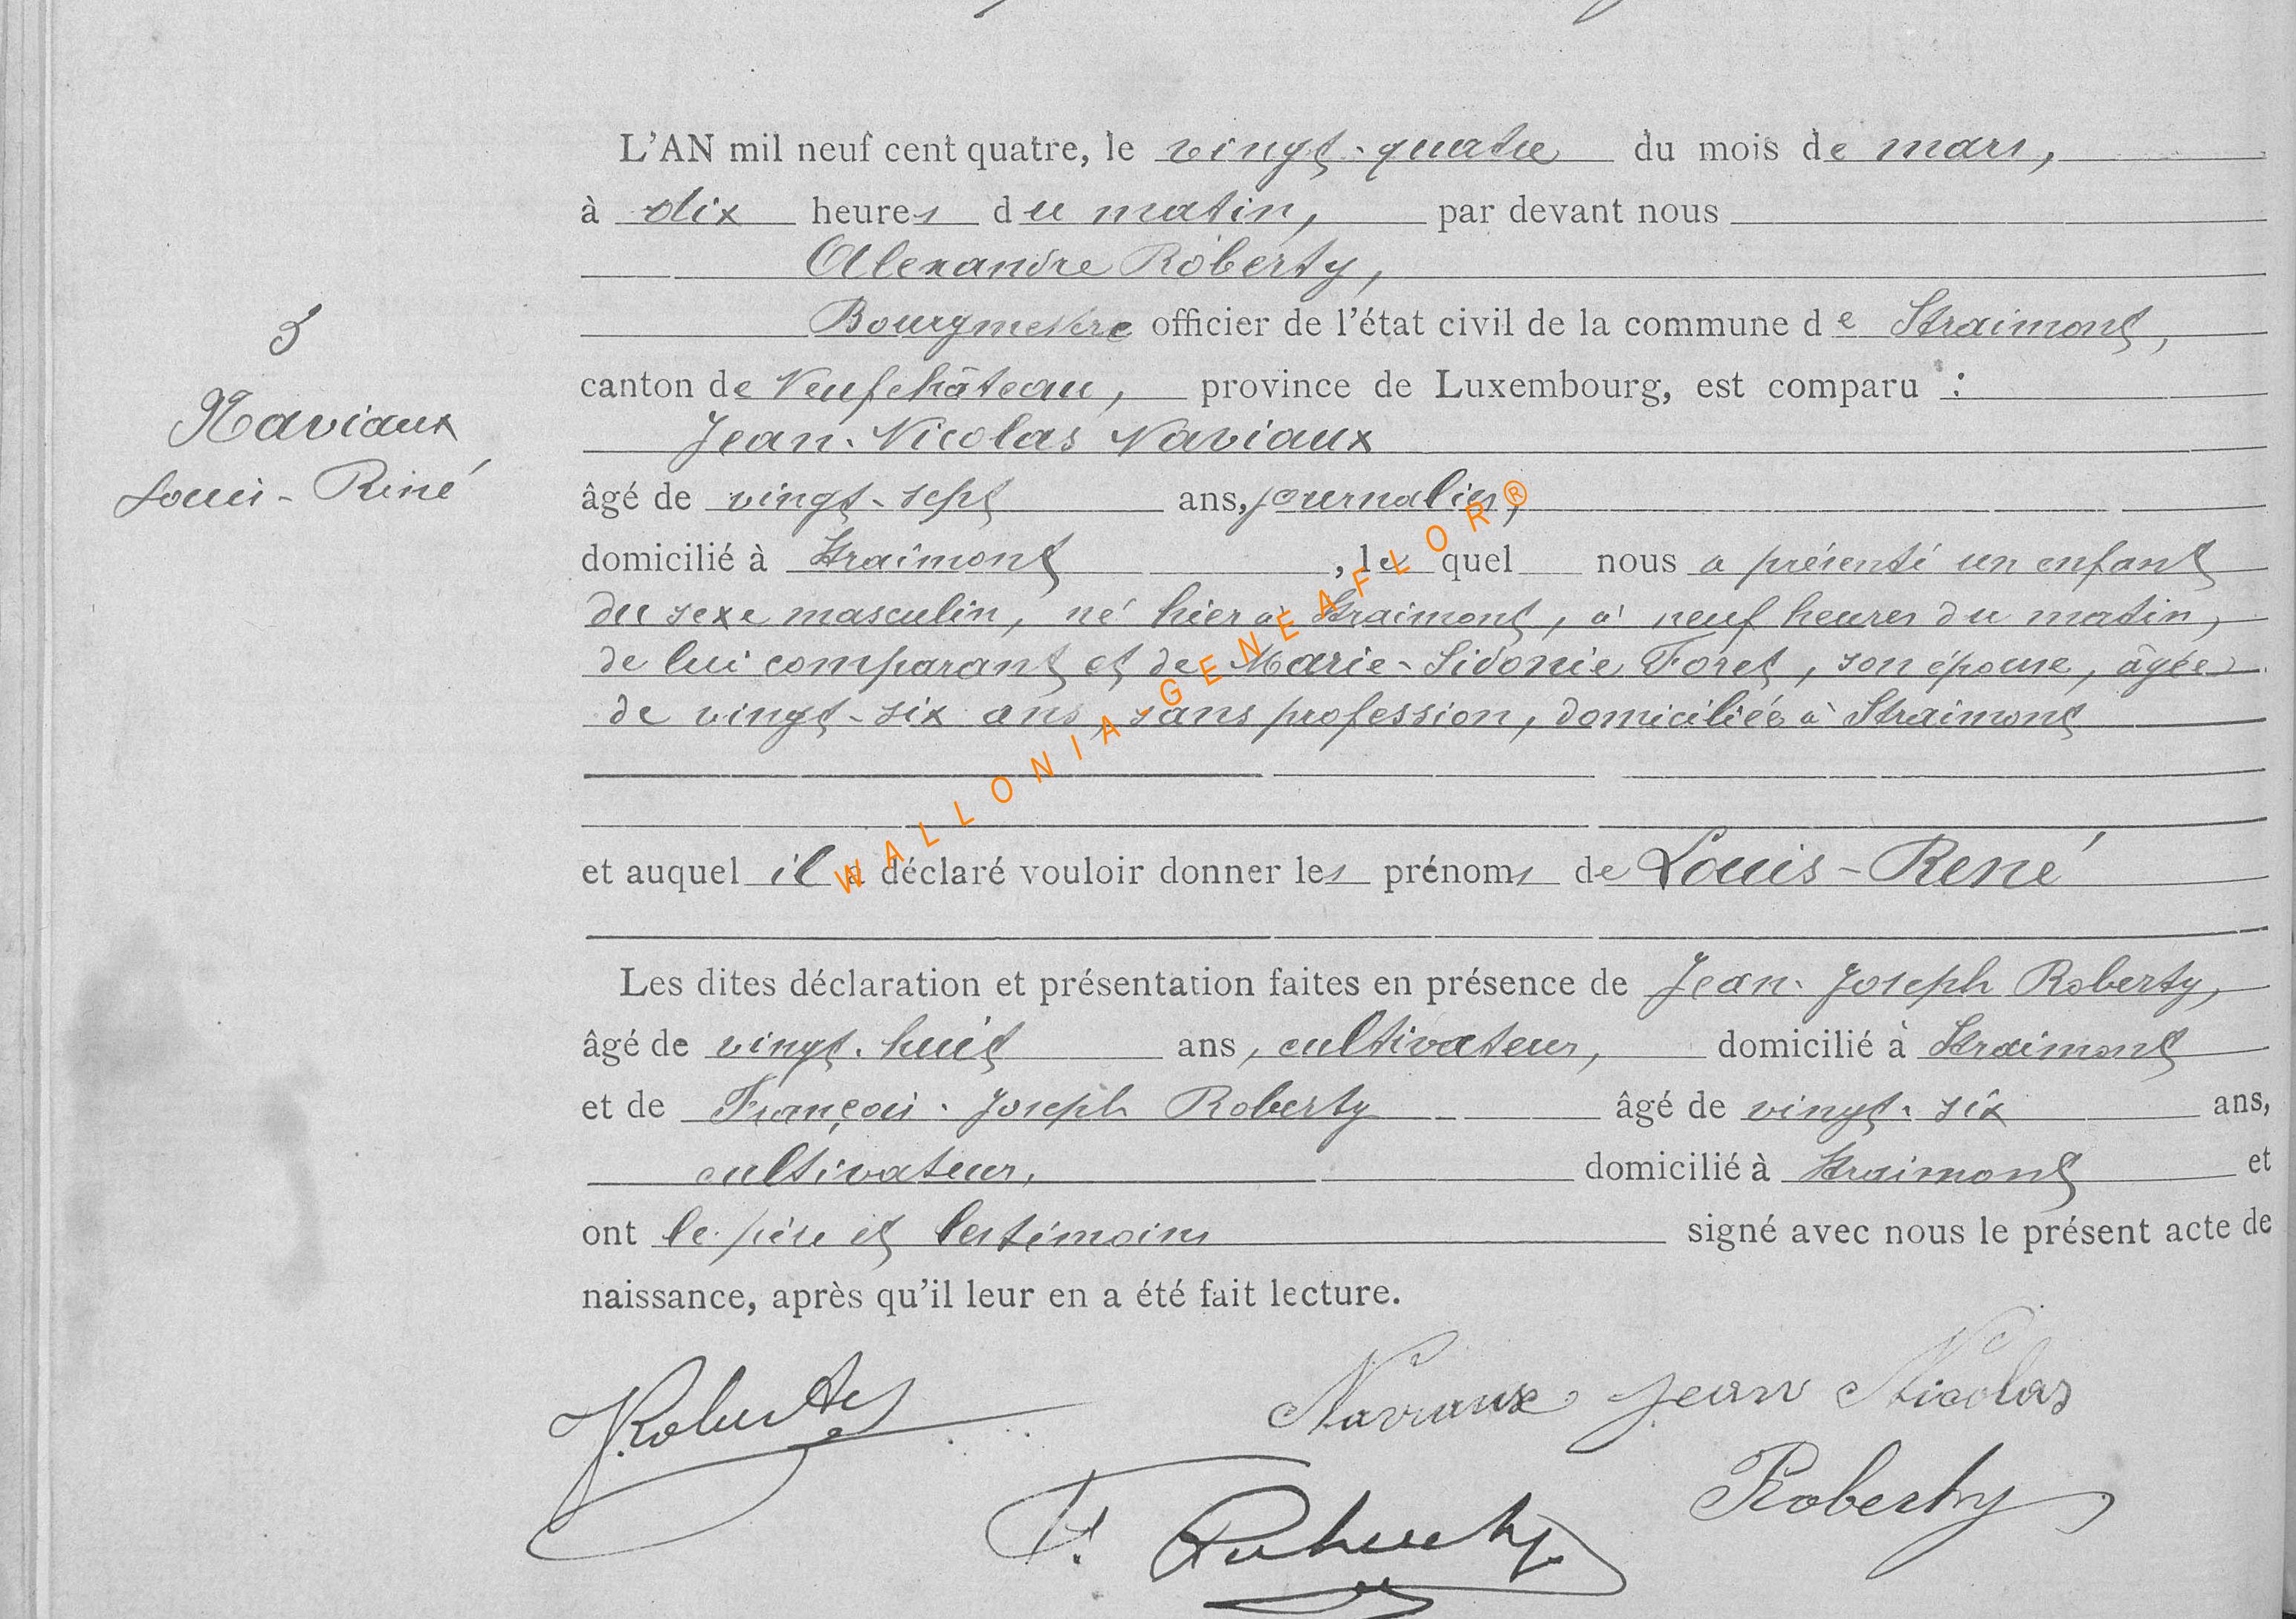 L'AN mil neuf cent quatre, le vingt-quatre du mois de mars,
à dix heures du matin, par devant nous
Alexandre Roberty,
Bourgmestre officier de l'état civil de la commune de Straimont,
canton de Neufchâteau, province de Luxembourg, est comparu :
Jean-Nicolas Naviaux
âgé de vingt-sept ans, journalier,
domicilié à Straimont, lequel nous a présenté un enfant
du sexe masculin, né hier à Straimont, à neuf heures du matin,
de lui comparant et de Marie-Sidonie Foret, son épouse, âgée
de vingt-six ans, sans profession, domiciliée à Straimont
et auquel il a déclaré vouloir donner les prénoms de Louis-René
Les dites déclaration et présentation faites en présence de Jean-Joseph Roberty,
âgé de vingt-huit ans, cultivateur, domicilié à Straimont
et de François-Joseph Roberty âgé de vingt-six ans,
cultivateur, domicilié à Straimont et
ont le père et les témoins signé avec nous le présent acte de
naissance, après qu'il leur en a été fait lecture.
5
Naviaux
Louis-René
J. Roberty
Naviaux Jean Nicolas
F. Roberty
Roberty
WALLONIA-GENEAFLOR®